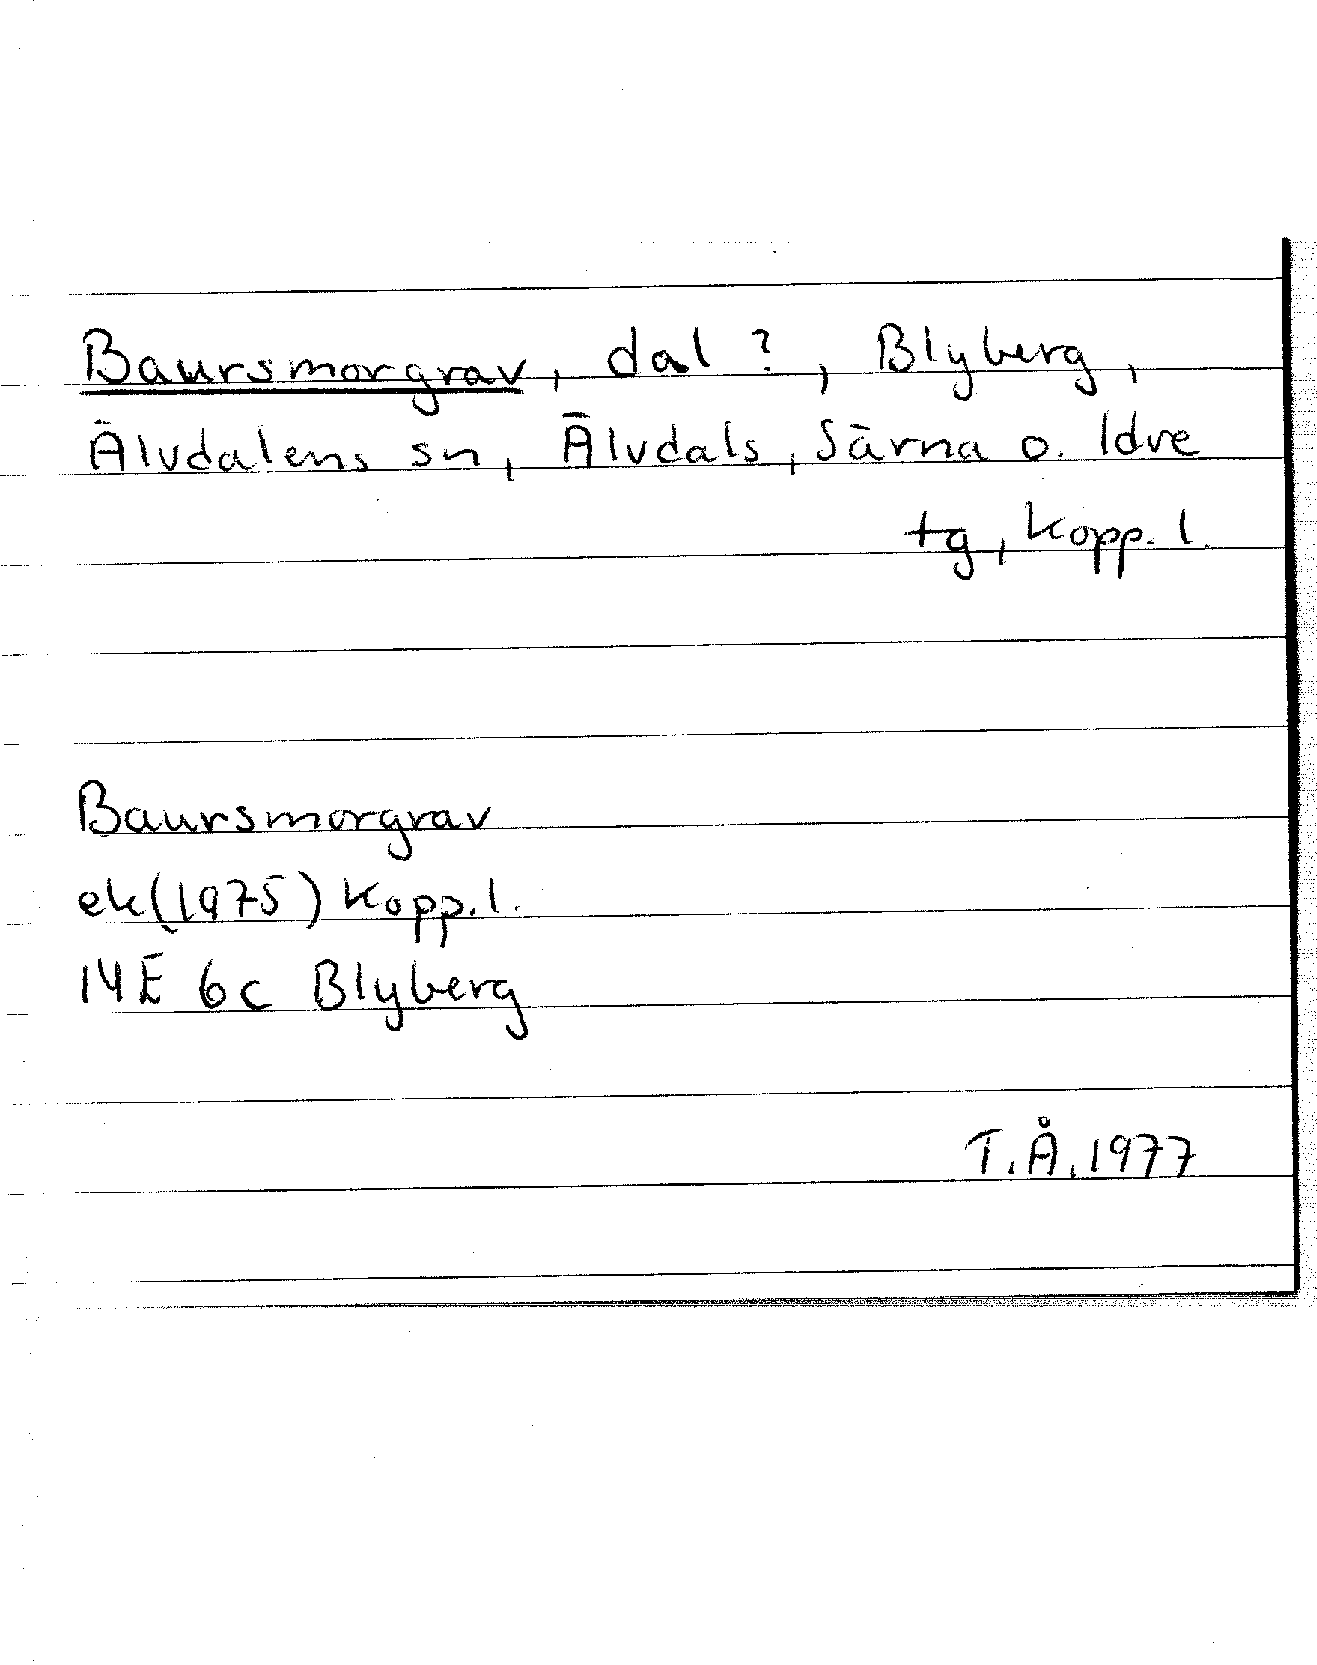 Baursmorgrav, dal ?, Blyberg,
Älvdalens sn, Älvdals, Särna o. Idre
tg, Kopp. l.
Baursmorgrav
ek(1975) Kopp. l.
14E 6c Blyberg
T.Å. 1977